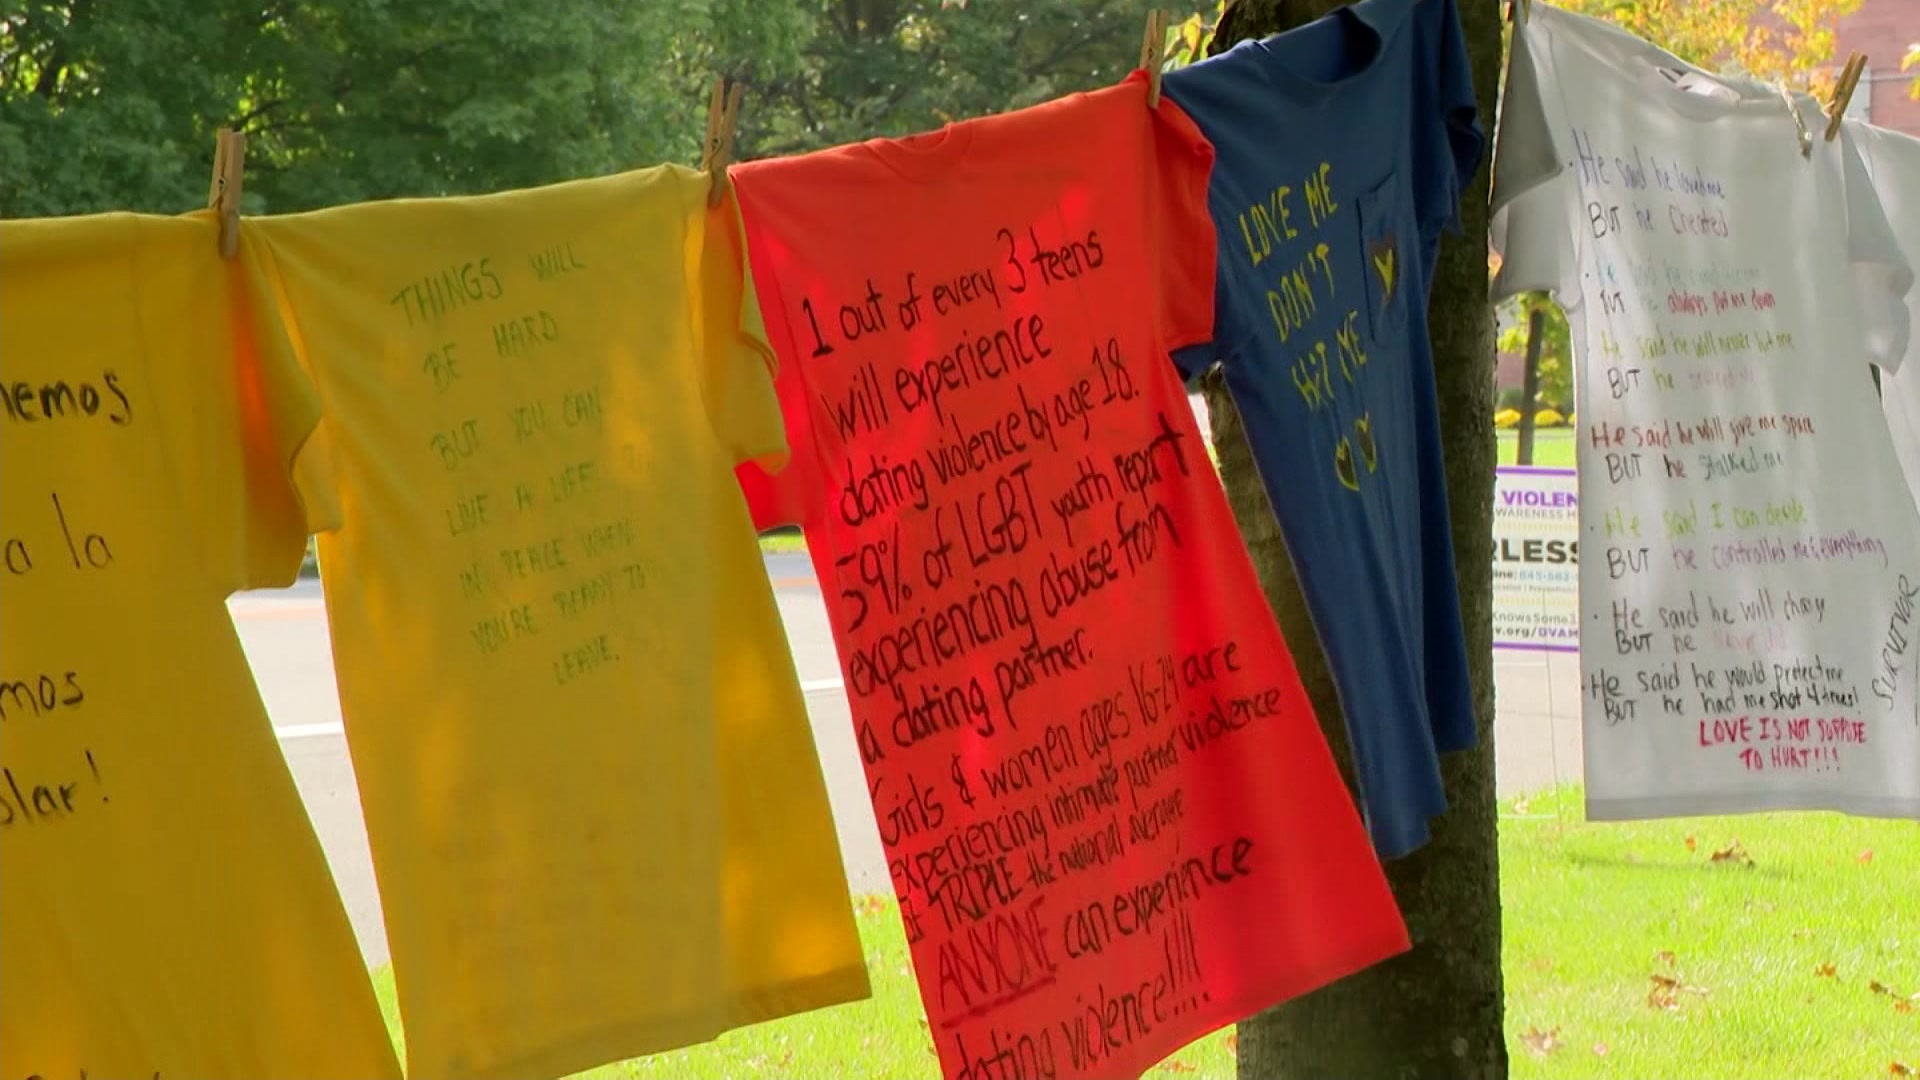 nemos
a la
mos
lar!
THINGS WILL
BE HARD
BUT YOU CAN
LIVE A LIFE
IN PEACE WHEN
YOU'RE READY TO
LEAVE.
1 out of every 3 teens
will experience
dating violence by age 18.
59% of LGBT youth report
experiencing abuse from
a dating partner.
Girls & women ages 16-24 are
experiencing intimate partner violence
at TRIPLE the national average
ANYONE can experience
dating violence!!!!
LOVE ME
DON'T
HIT ME
VIOLEN
WARENESS
RLESS
.org/DVAM
· He said he loved me
BUT he Cheated
BUT he always put me down
He said he will never hit me
BUT he
He said he will give me space
BUT he stalked me
· He said I can decide
BUT he controlled me & everything
· He said he will change
BUT he never did
· He said he would protect me
BUT he had me shot 4 times!
LOVE IS NOT SUPPOSE
TO HURT!!!
SURVIVOR